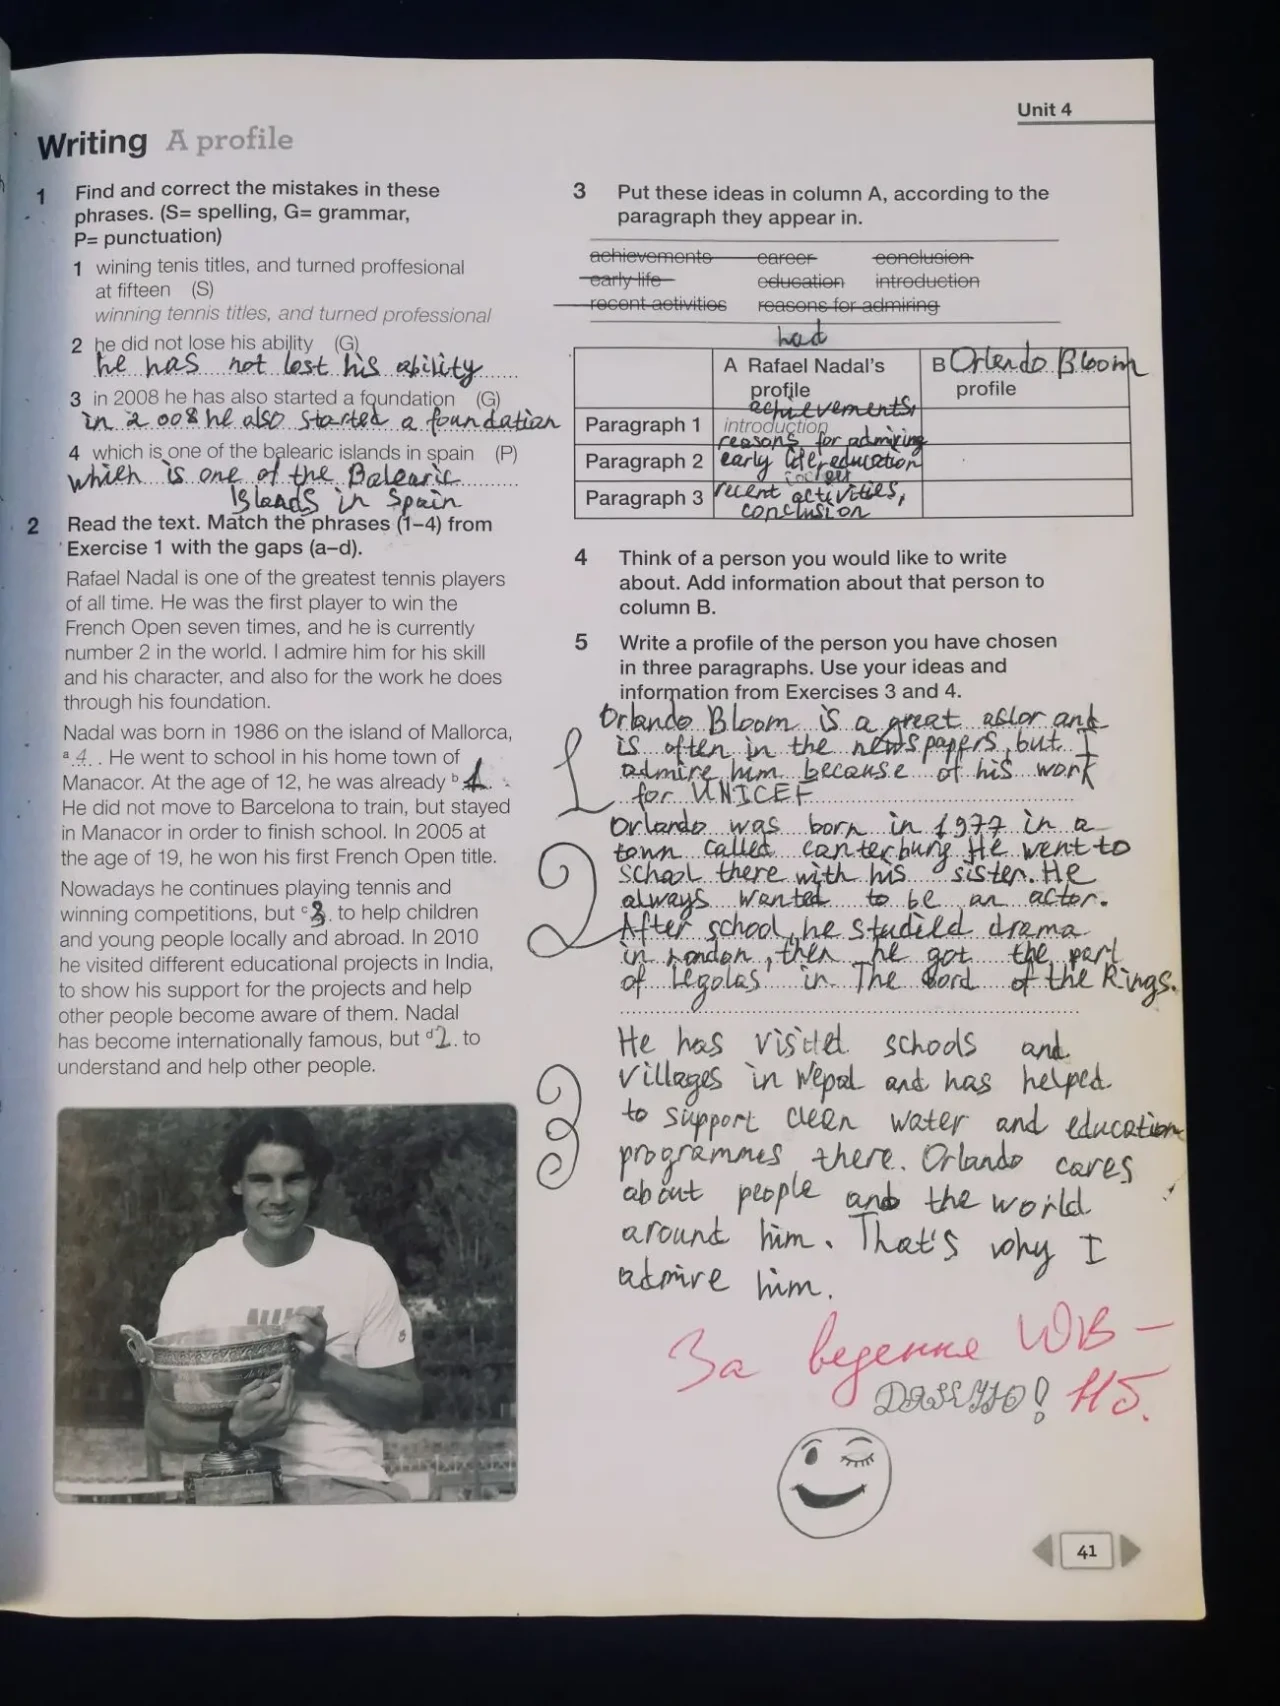 Unit 4
Writing A profile
1 Find and correct the mistakes in these
phrases. (S= spelling, G= grammar,
P= punctuation)
1 wining tenis titles, and turned proffesional
at fifteen (S)
winning tennis titles, and turned professional
2 he did not lose his ability (G)
he has not lost his ability
3 in 2008 he has also started a foundation (G)
in 2008 he also started a foundation
4 which is one of the balearic islands in spain (P)
which is one of the Balearic
Islands in Spain
2 Read the text. Match the phrases (1–4) from
Exercise 1 with the gaps (a–d).
Rafael Nadal is one of the greatest tennis players
of all time. He was the first player to win the
French Open seven times, and he is currently
number 2 in the world. I admire him for his skill
and his character, and also for the work he does
through his foundation.
Nadal was born in 1986 on the island of Mallorca,
a 4. . He went to school in his home town of
Manacor. At the age of 12, he was already b 1. .
He did not move to Barcelona to train, but stayed
in Manacor in order to finish school. In 2005 at
the age of 19, he won his first French Open title.
Nowadays he continues playing tennis and
winning competitions, but c 3. to help children
and young people locally and abroad. In 2010
he visited different educational projects in India,
to show his support for the projects and help
other people become aware of them. Nadal
has become internationally famous, but d 2. to
understand and help other people.
3 Put these ideas in column A, according to the
paragraph they appear in.
achievements career conclusion
early life education introduction
recent activities reasons for admiring
had
A Rafael Nadal's
profile
B Orlando Bloom
profile
achievements,
Paragraph 1 introduction
reasons for admiring
Paragraph 2 early life, education
career
Paragraph 3 recent activities,
conclusion
4 Think of a person you would like to write
about. Add information about that person to
column B.
5 Write a profile of the person you have chosen
in three paragraphs. Use your ideas and
information from Exercises 3 and 4.
1 Orlando Bloom is a great actor and
is often in the newspapers, but I
admire him because of his work
for UNICEF
2 Orlando was born in 1977 in a
town called canterbury He went to
school there with his sister. He
always wanted to be an actor.
After school, he studied drama
in London, then he got the part
of Legolas in The Lord of the Rings.
3 He has visited schools and
villages in Nepal and has helped
to support clean water and education
programmes there. Orlando cares
about people and the world
around him. That's why I
admire him.
За ведення WB –
ДЯКУЮ! 11б.
41